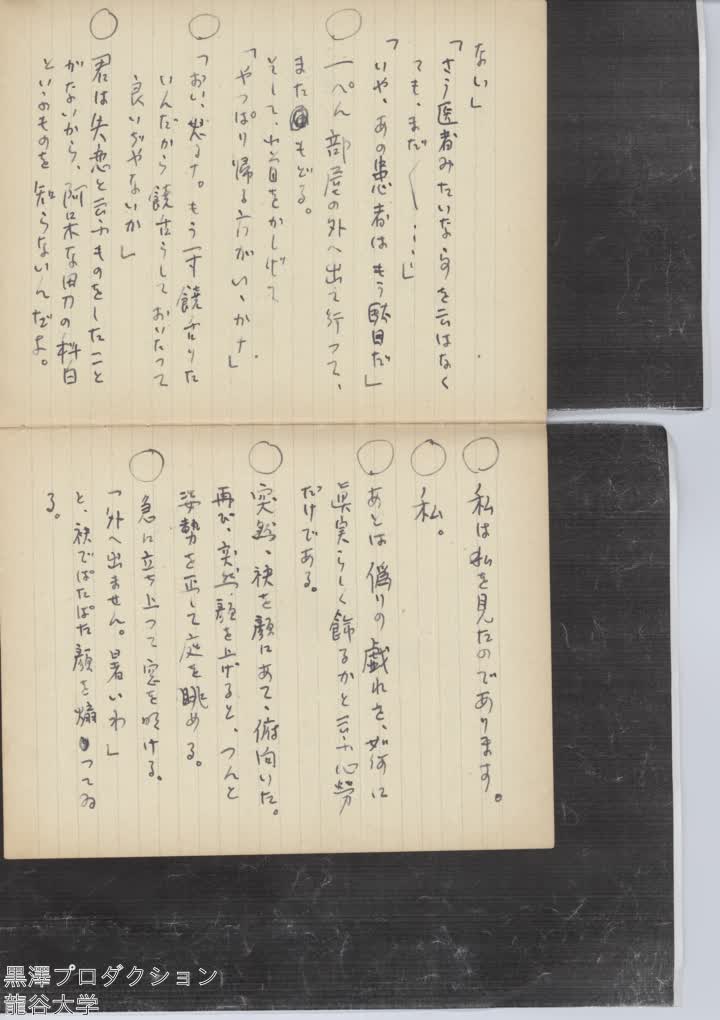 ない」
「さう医者みたいな事を云はなく
ても、まだ〱…」
「いや、あの患者はもう駄目だ」
○
一ぺん部屋の外へ出て行って、
またもどる。
そして、小首をかしげて
「やっぱり帰る方がいゝかナ」
○
「おい、怒るナ。もう一寸饒舌りた
いんだから饒舌うしておいたって
良いぢやないか」
○
君は失恋と云ふものをしたこと
がないから、阿呆な男の科白
といふものを知らないんだよ。
○
私は私を見たのであります。
○
私。
○
あとは偽りの戯れを、如何に
眞実らしく飾るかと云ふ心労
だけである。
○
突然、袂を顔にあて、俯向いた。
再び、突然顔を上げると、つんと
姿勢を正して庭を眺める。
○
急に立ち上つて窓を明ける。
「外へ出ません。暑いわ」
と、袂でぱたぱた顔を煽つてゐ
る。
黒澤プロダクション
龍谷大学